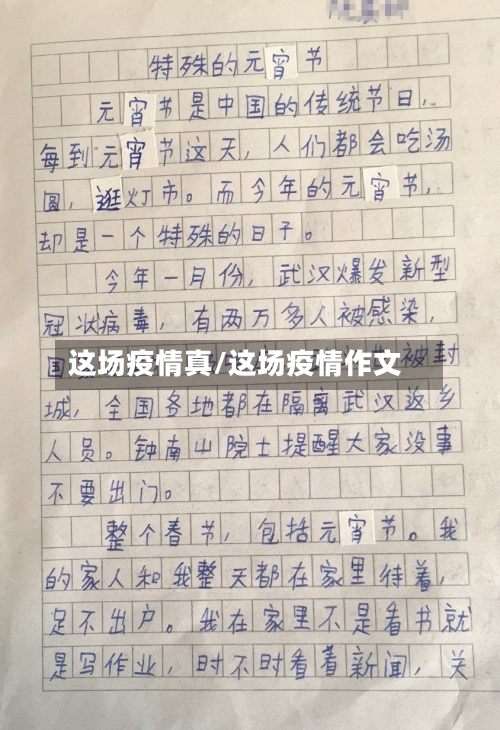 特殊的元宵节
元宵节是中国的传统节日，
每到元宵节这天，人们都会吃汤
圆，逛灯市。而今年的元宵节，
却是一个特殊的日子。
今年一月份，武汉爆发新型
冠状病毒，有两万多人被感染，
这场疫情真/这场疫情作文
国 被封
城，全国各地都在隔离武汉返乡
人员。钟南山院士提醒大家没事
不要出门。
整个春节，包括元宵节。我
的家人和我整天都在家里待着，
足不出户。我在家里不是看书就
是写作业，时不时看看新闻，关